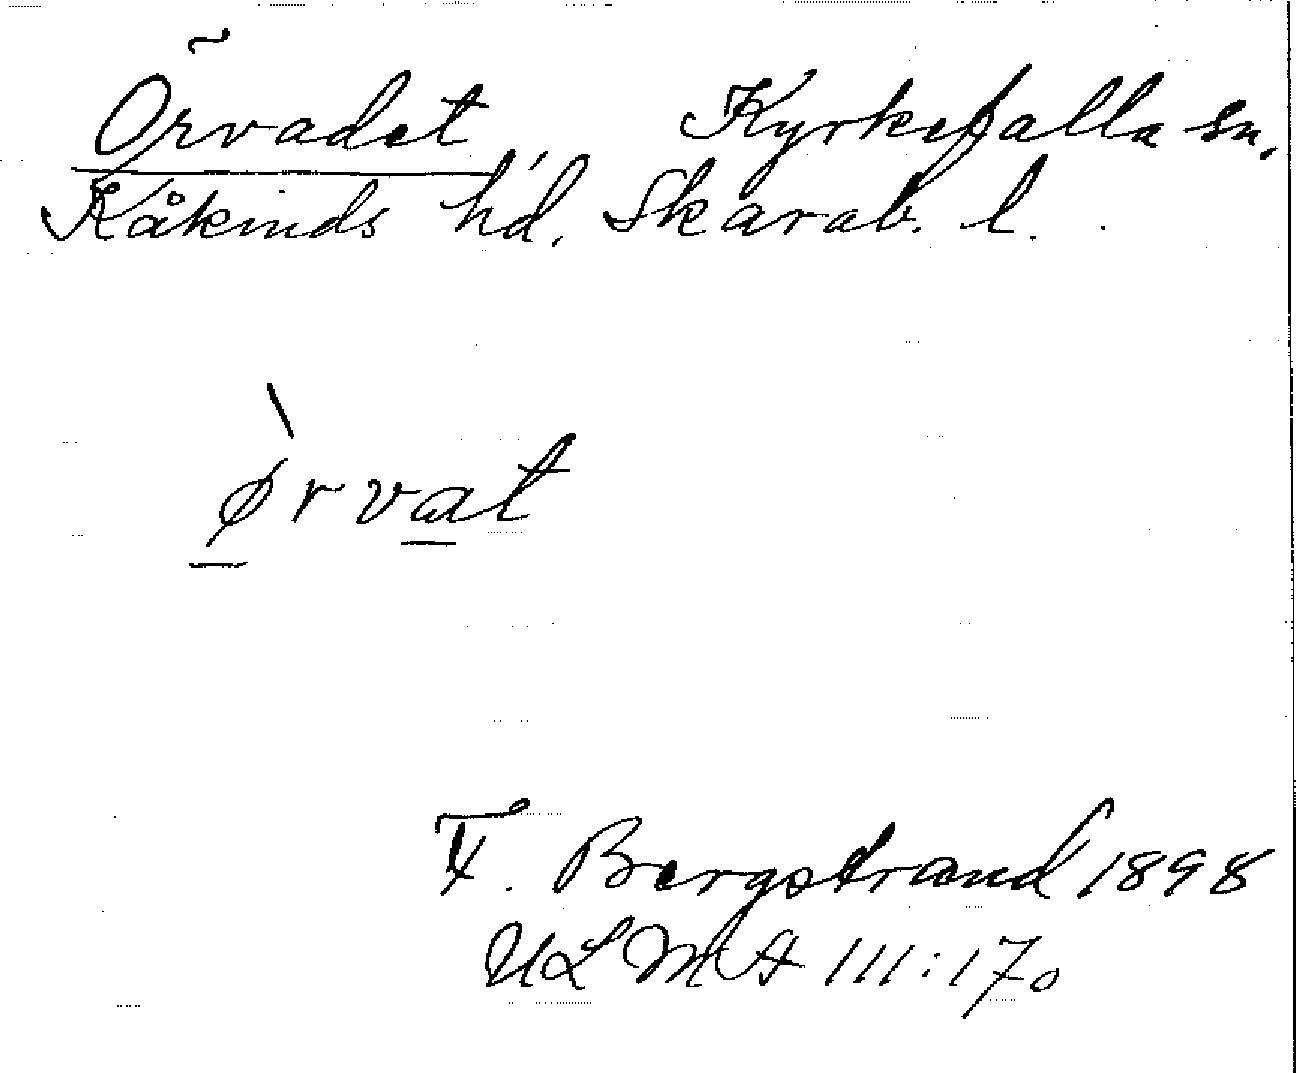 Örvadet, Kyrkefalla sn,
Kåkinds hd, Skarab. l.
ørvat
F. Bergstrand 1898
ULMA 111:170